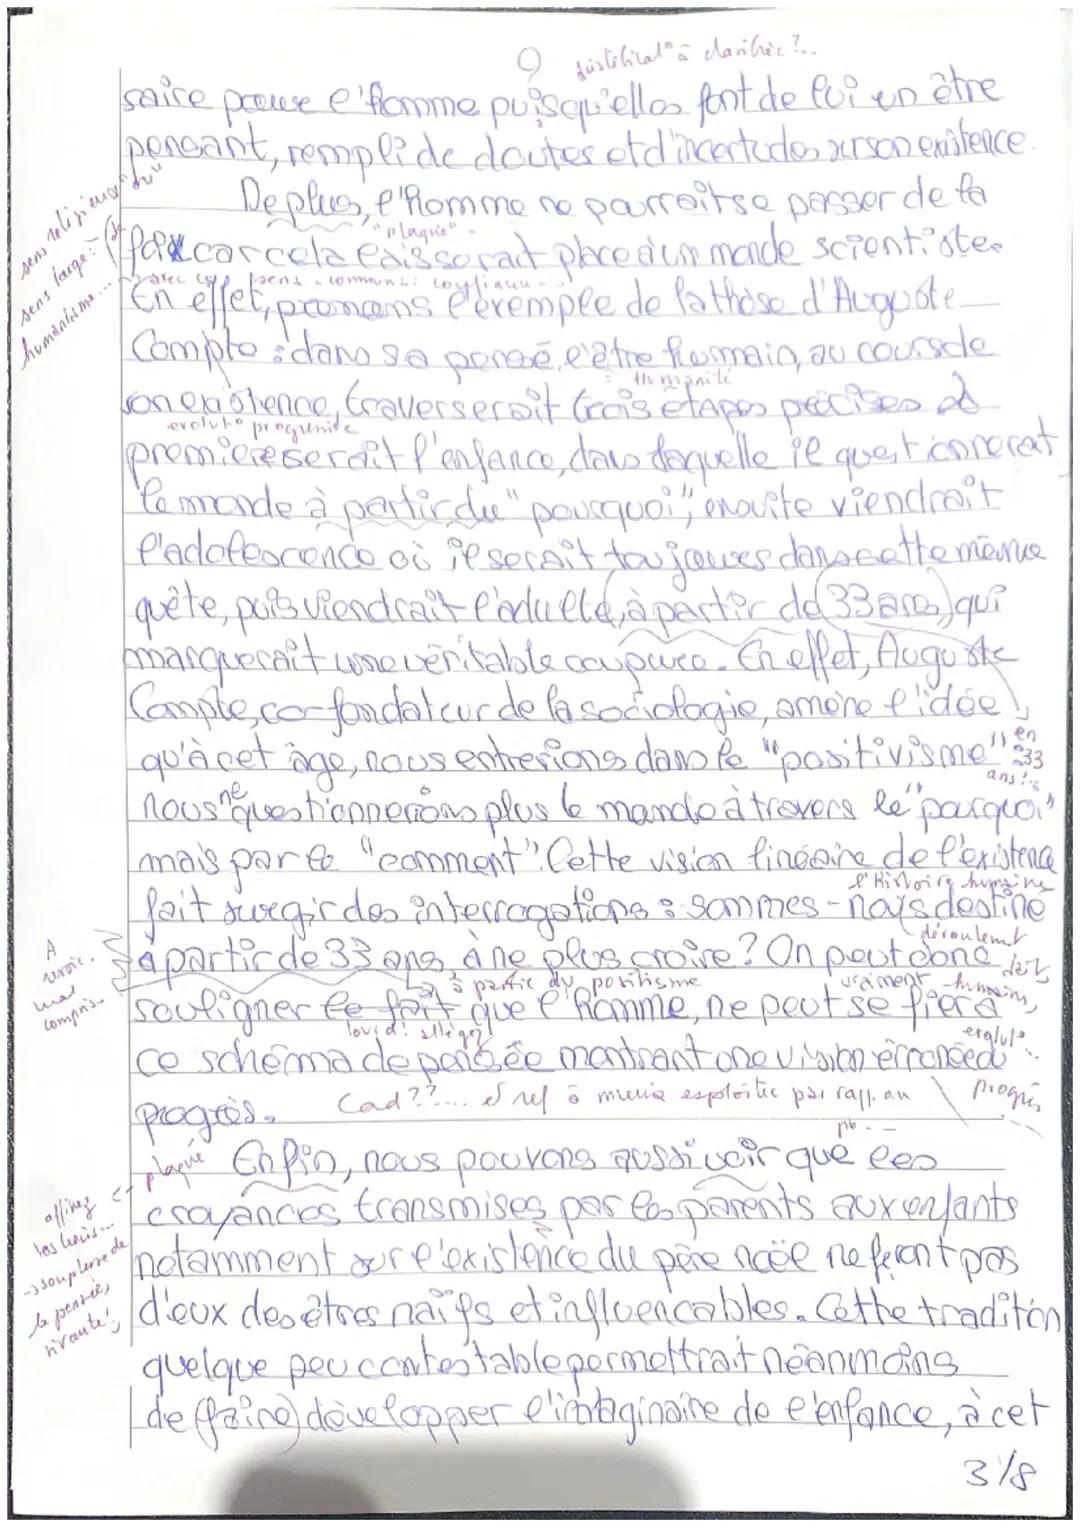 justificat° à clarifier ?..
saire pour l'homme puisqu'elles font de lui un être
pensant, rempli de doutes et d'incertudes sur son existence.
De plus, l'Homme ne pourrait se passer de la
"plaqué"
sens religieux
sens large :
humanisme...
foi car cela laisserait place à un monde scientiste.
sens commun : confiance
En effet, prenons l'exemple de la thèse d'Auguste
Compte : dans sa pensé, l'être humain, au cours de
= Humanité
son existence, traverserait trois étapes précises la
première serait l'enfance, dans laquelle il questionnerait
le monde à partir du "pourquoi", ensuite viendrait
l'adolescence où il serait toujours dans cette même
quête, puis viendrait l'adulte, à partir de 33 ans, qui
marquerait une véritable coupure. En effet, Auguste
Compte, co-fondateur de la sociologie, amène l'idée
qu'à cet âge, nous entrerions dans le "positivisme" :
en 33 ans !..
nous ne questionnerions plus le monde à travers le "pourquoi"
mais par le "comment". Cette vision linéaire de l'existence
l'Histoire humaine
fait surgir des interrogations : sommes-nous destiné
déroulemt
A revoir. mal compris.
à partir de 33 ans à ne plus croire ? On peut donc
à partir du positisme
vraiment
souligner le fait que l'Homme, ne peut se fier à
lourd ! allégez !
ce schéma de pensée montrant une vision érronée du
progrès.
Cad ??.... et ref à mieux exploiter par rapp. au pb...
progrès
plaqué
Enfin, nous pouvons aussi voir que les
affinez les liens...
-> souplesse de la pensée,
croyances transmises par les parents aux enfants
notamment sur l'existence du père noël ne feront pas
d'eux des êtres naïfs et influencables. Cette traditon
quelque peu contestable permettrait néanmoins
de (faire) développer l'imaginaire de l'enfance, à cet
3/8